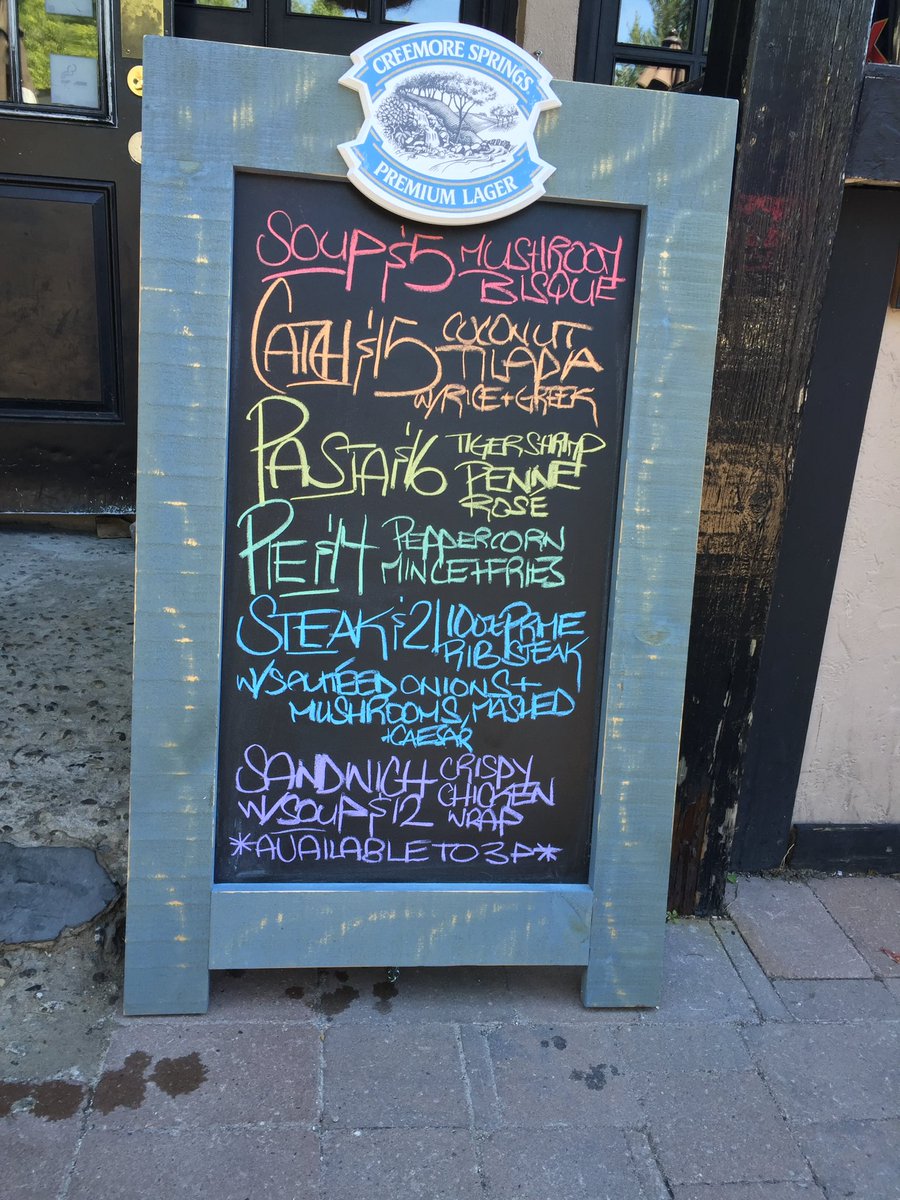 CREEMORE SPRINGS
PREMIUM LAGER
SOUP $5 MUSHROOM
BISQUE
CATCH $15 COCONUT
TILAPIA
W/RICE + GREEK
PASTA $16 TIGER SHRIMP
PENNE
ROSE
PIE $14 PEPPERCORN
MINCE + FRIES
STEAK $21 10oz PRIME
RIB STEAK
W/SAUTÉED ONIONS +
MUSHROOMS, MASHED
+ CAESAR
SANDWICH CRISPY
W/SOUP $12 CHICKEN
WRAP
*AVAILABLE TO 3P*